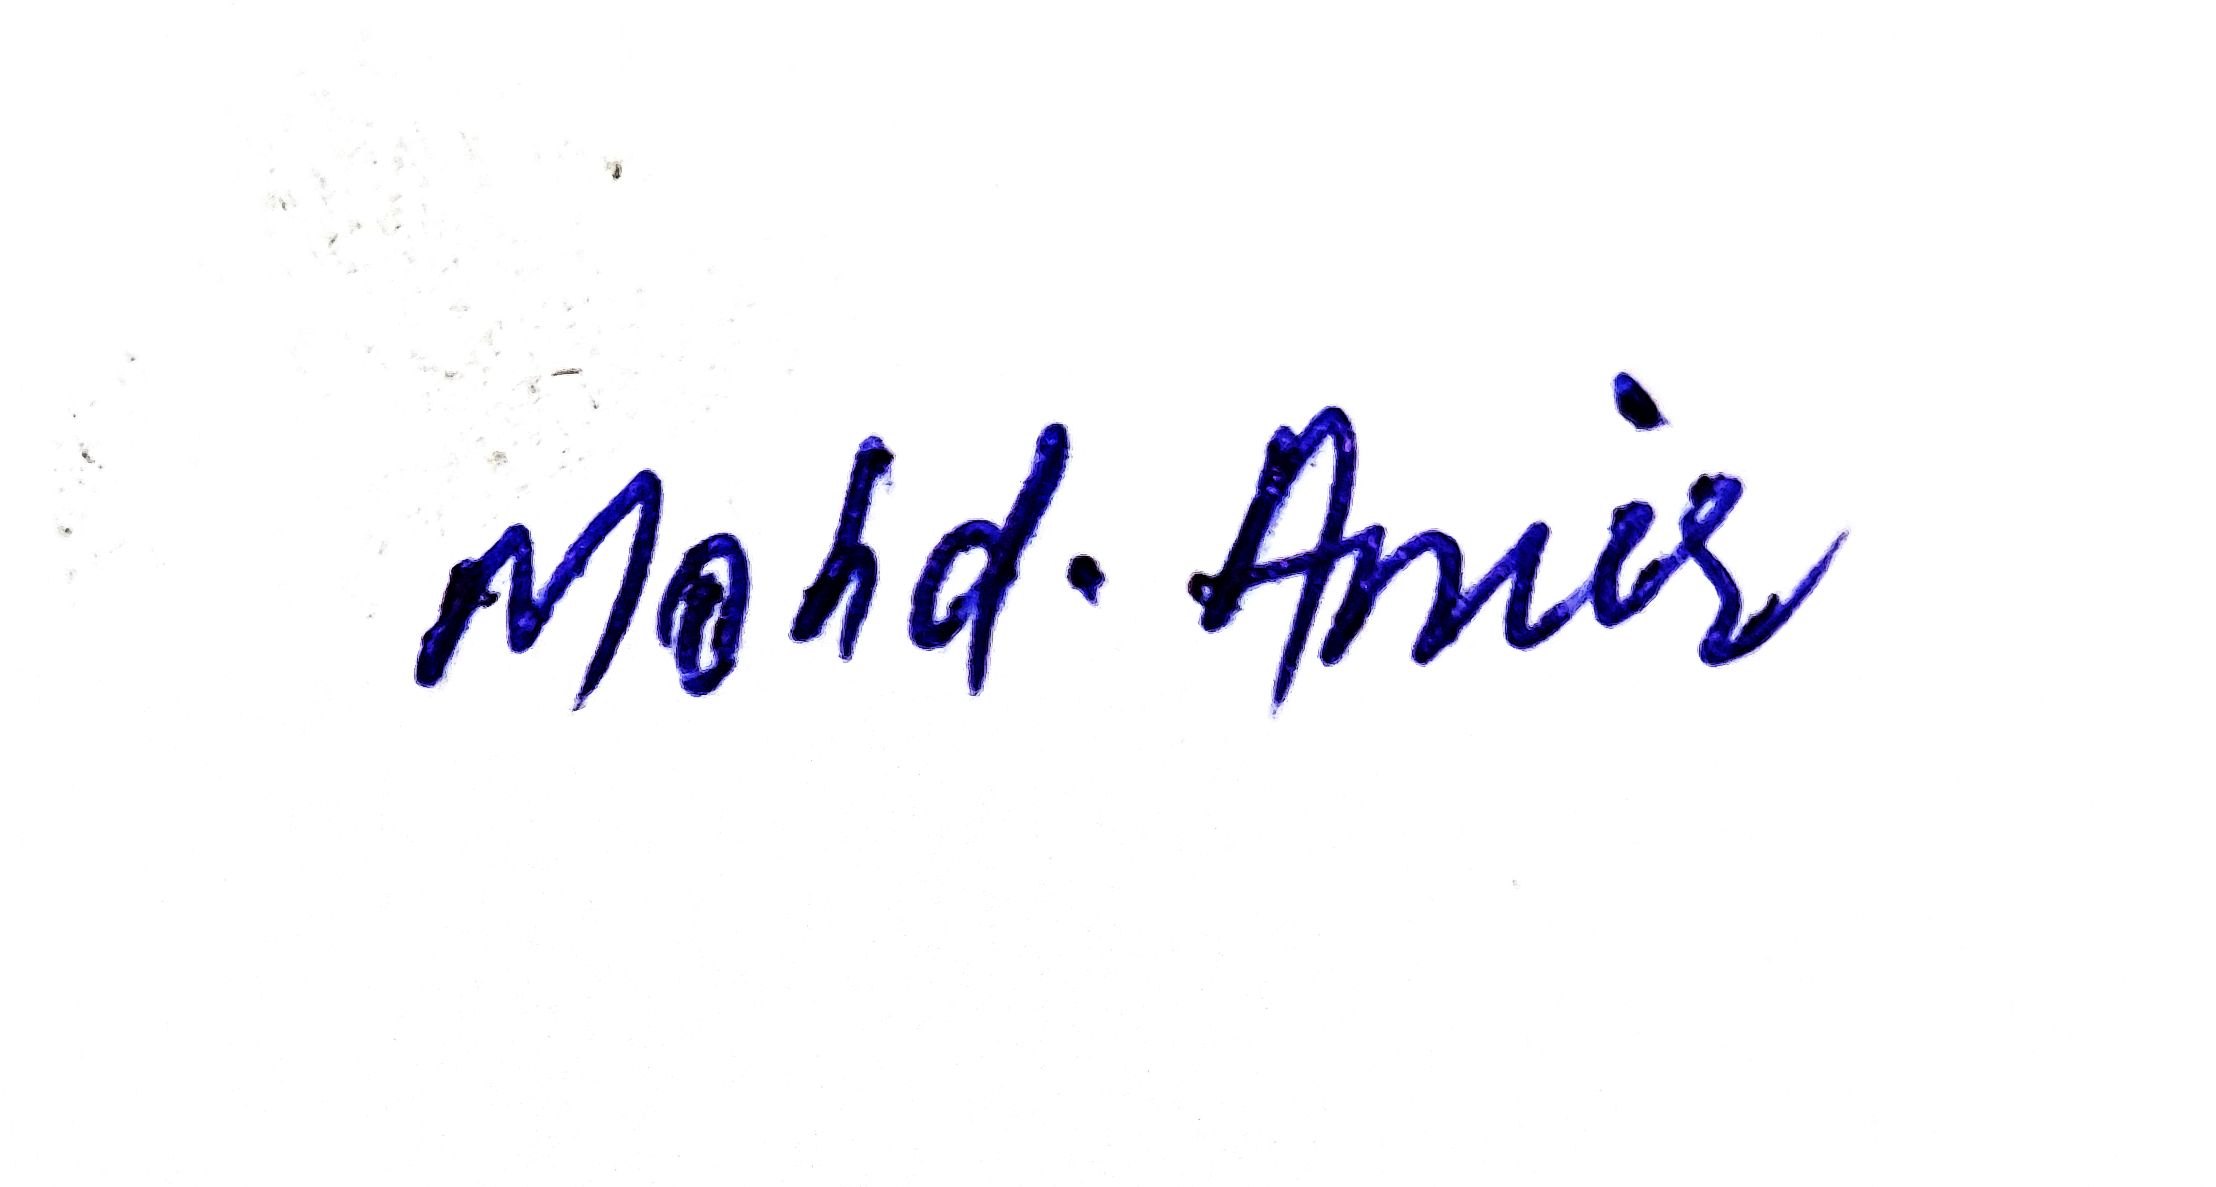 Mohd. Amir